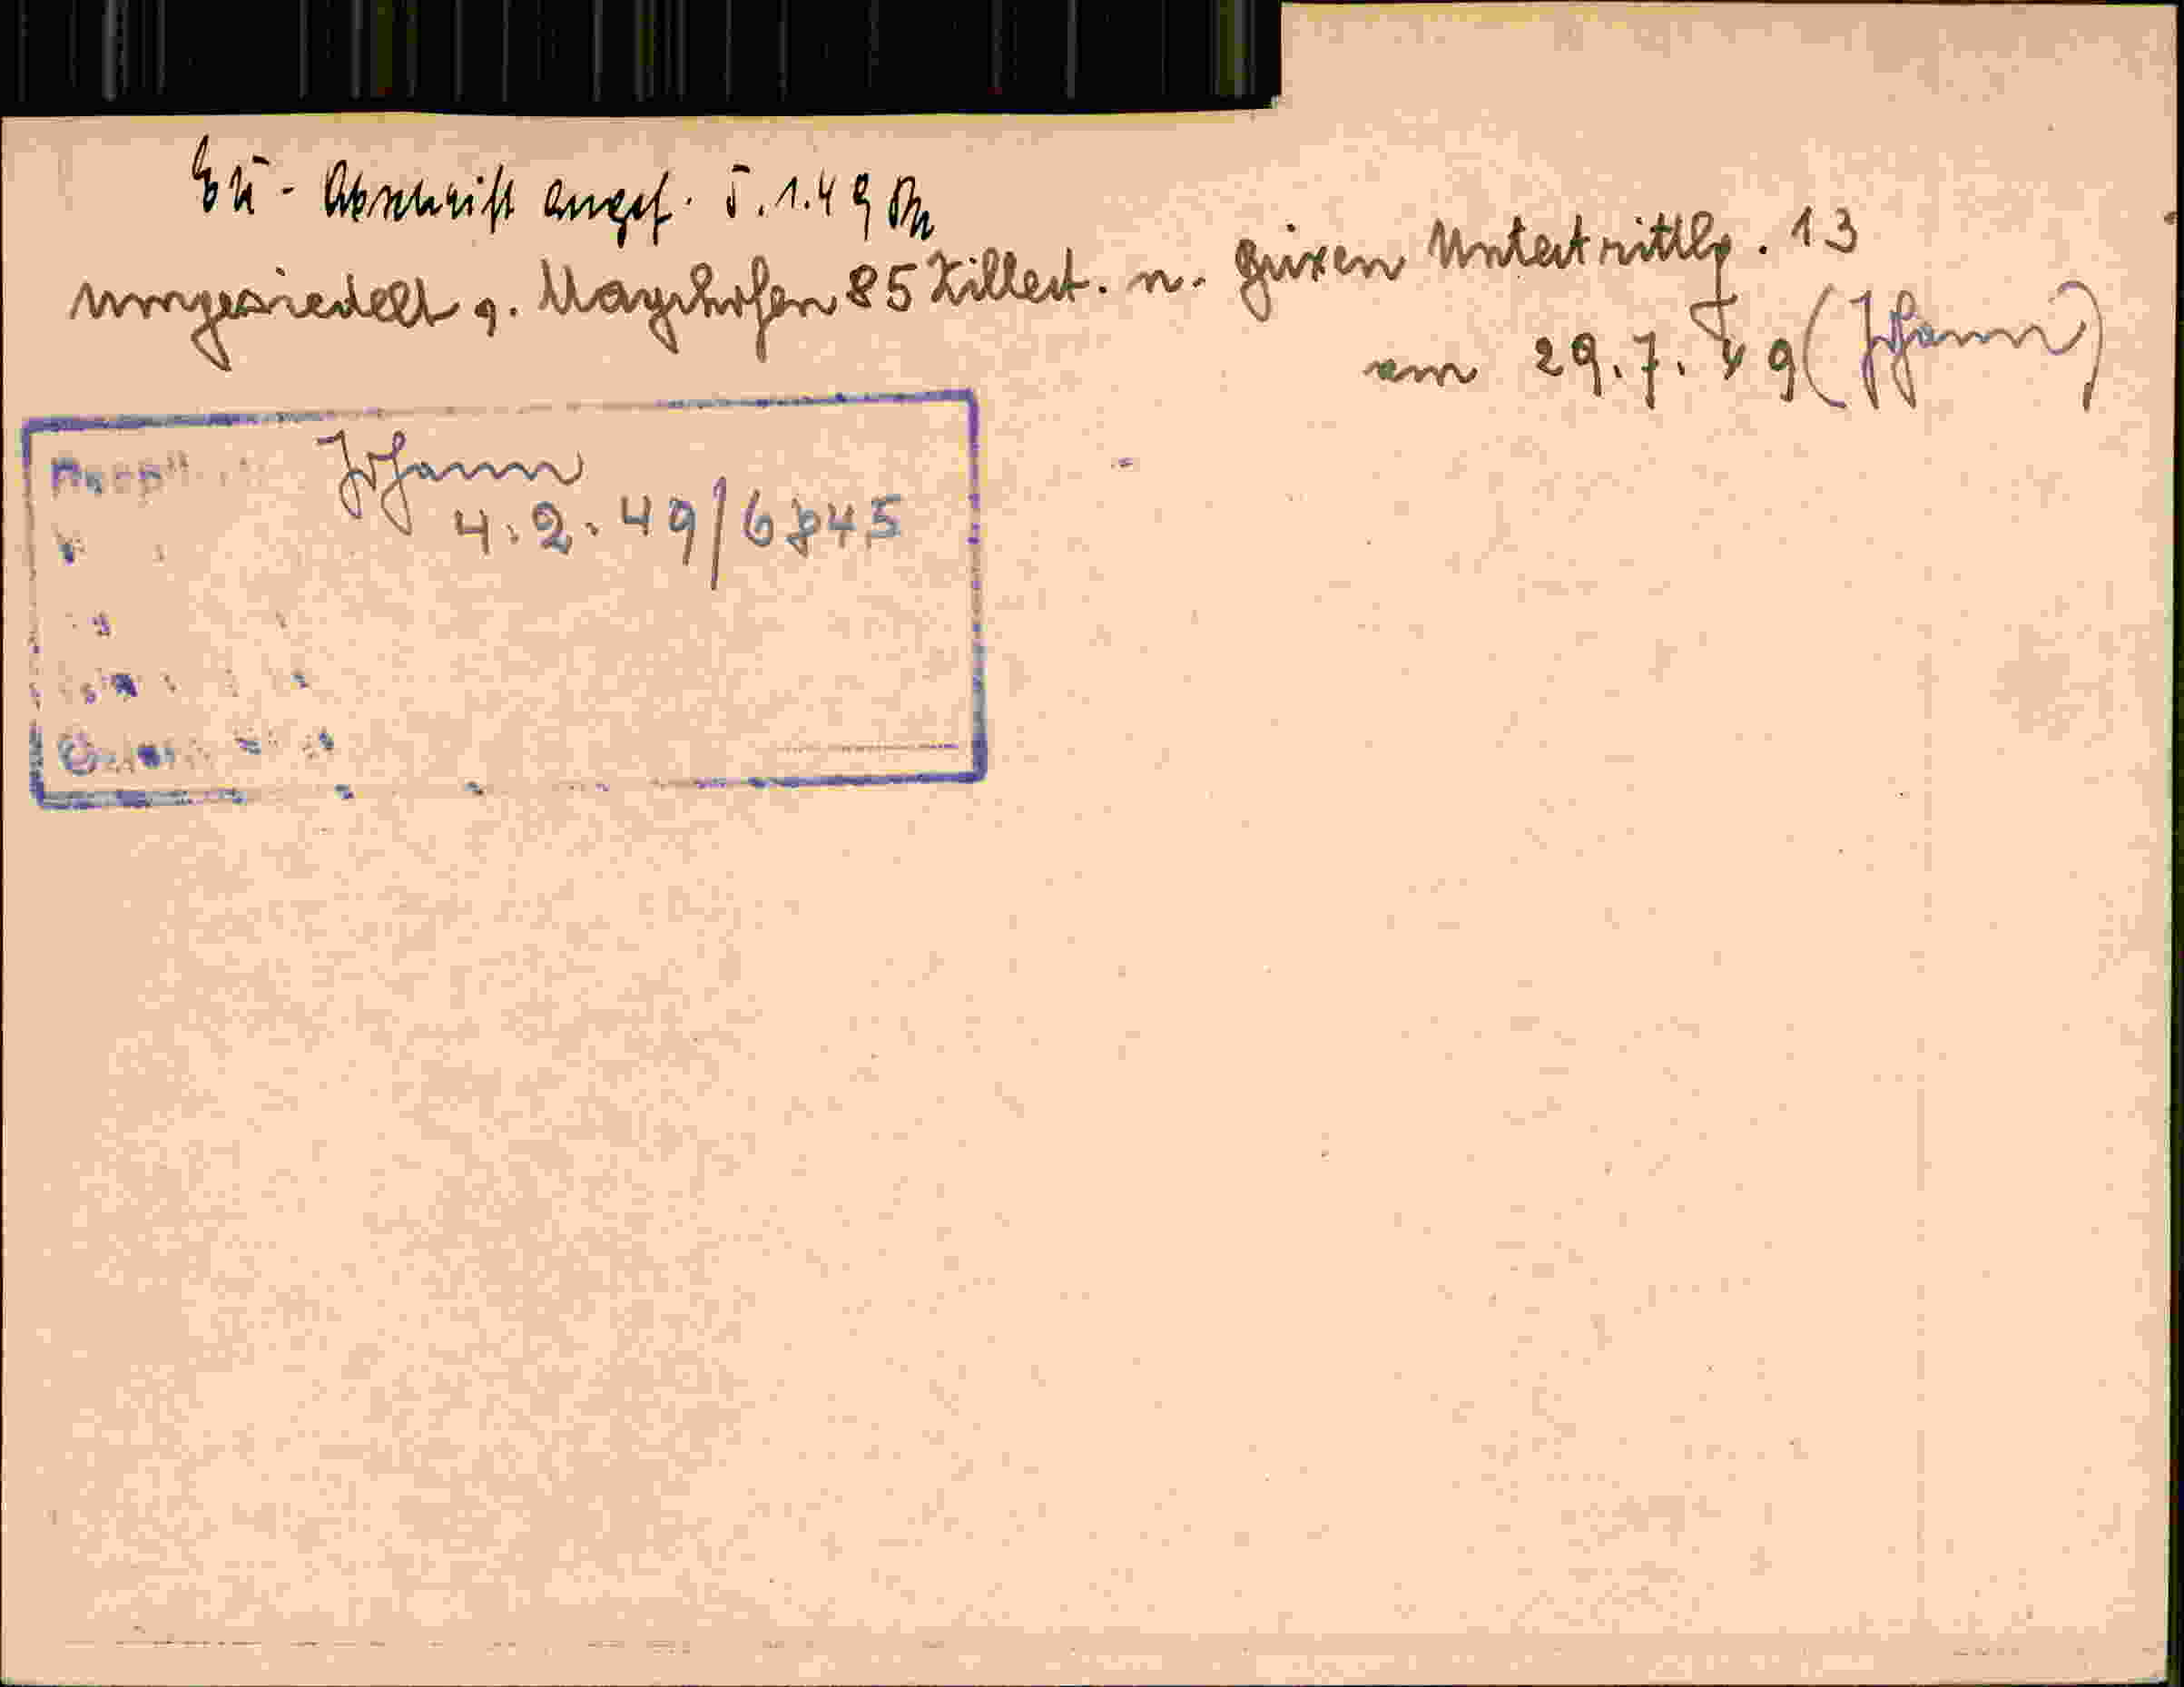 EÜ-Abschrift angef. 5.1.49
umgesiedelt v. Mayrhofen 85 Zillert. n. Brixen Untertrittlg. 13
am 29.7.49 (Pfann)
Pfann
4.2.49/6845